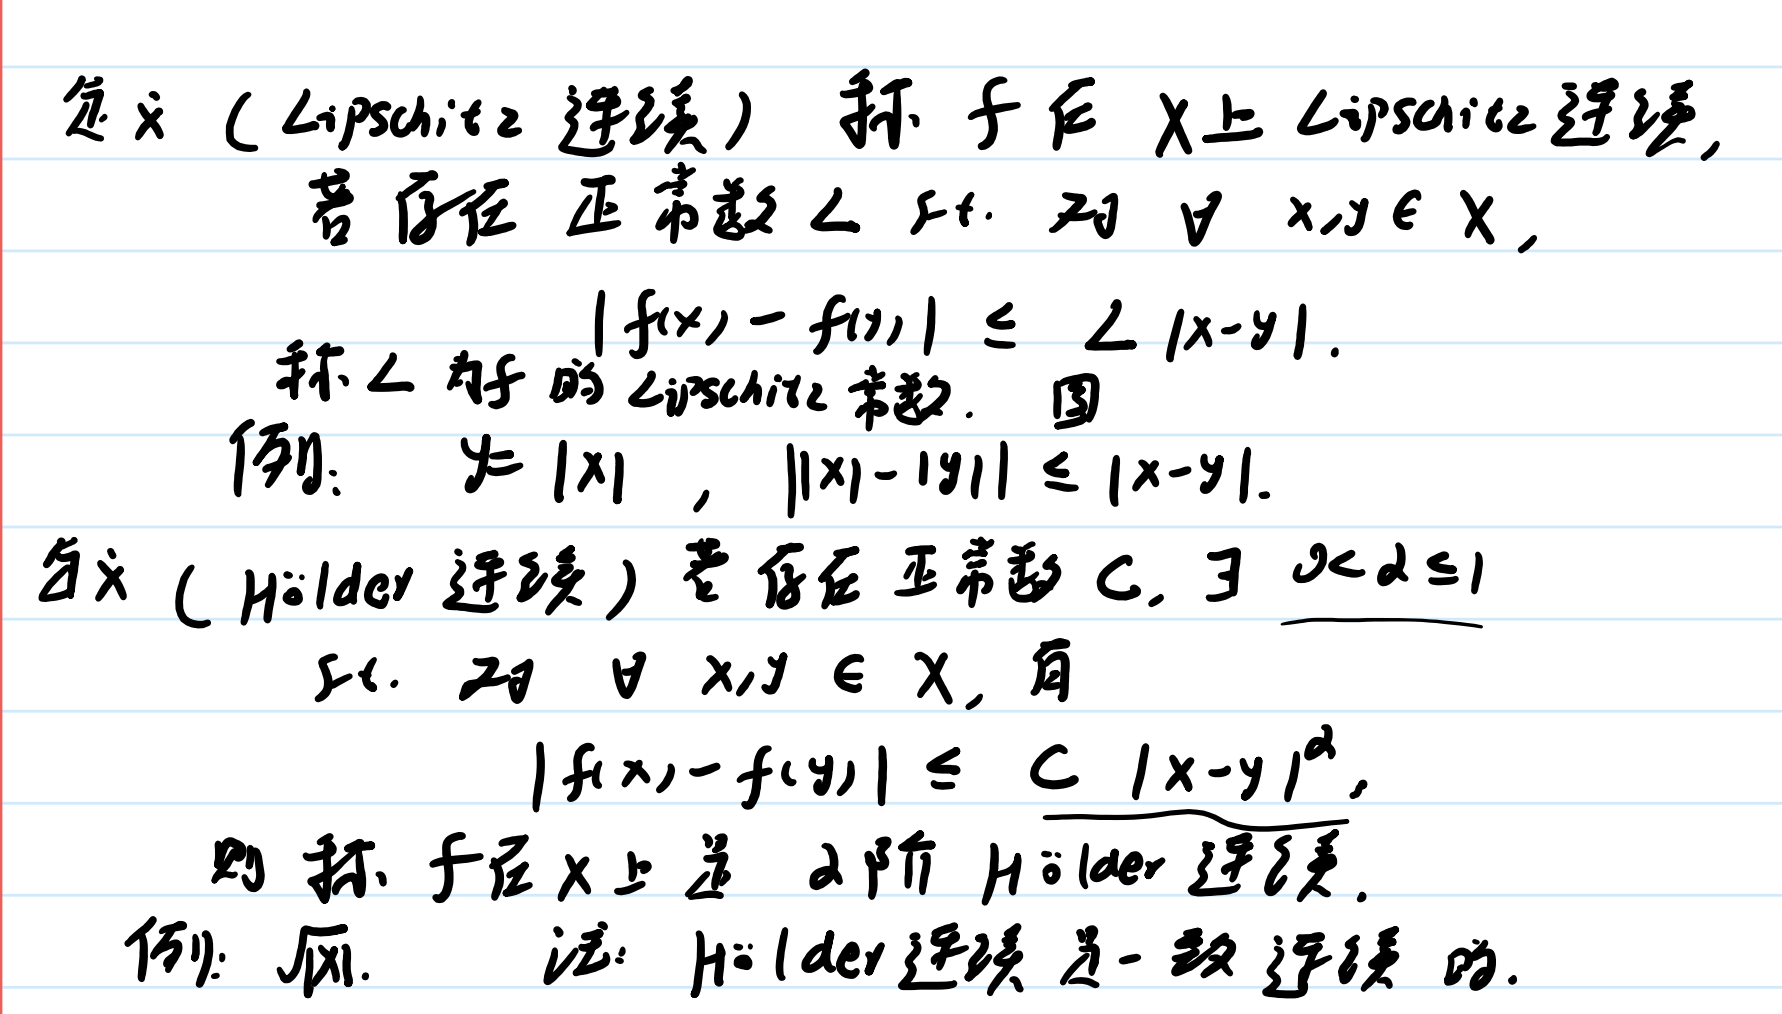 定义 (Lipschitz 连续) 称 f 在 X 上 Lipschitz 连续,
若存在正常数 L s.t. 对 ∀ x,y ∈ X,
|f(x) - f(y)| ≤ L |x-y|.
称 L 为 f 的 Lipschitz 常数. 图
例: y= |x| , ||x|-|y|| ≤ |x-y|.
定义 (Hölder 连续) 若存在正常数 C, ∃ 0<α≤1
s.t. 对 ∀ x,y ∈ X, 有
|f(x)-f(y)| ≤ C |x-y|^α,
则称 f 在 X 上是 α 阶 Hölder 连续.
例: √|x|. 注: Hölder 连续是一致连续的.